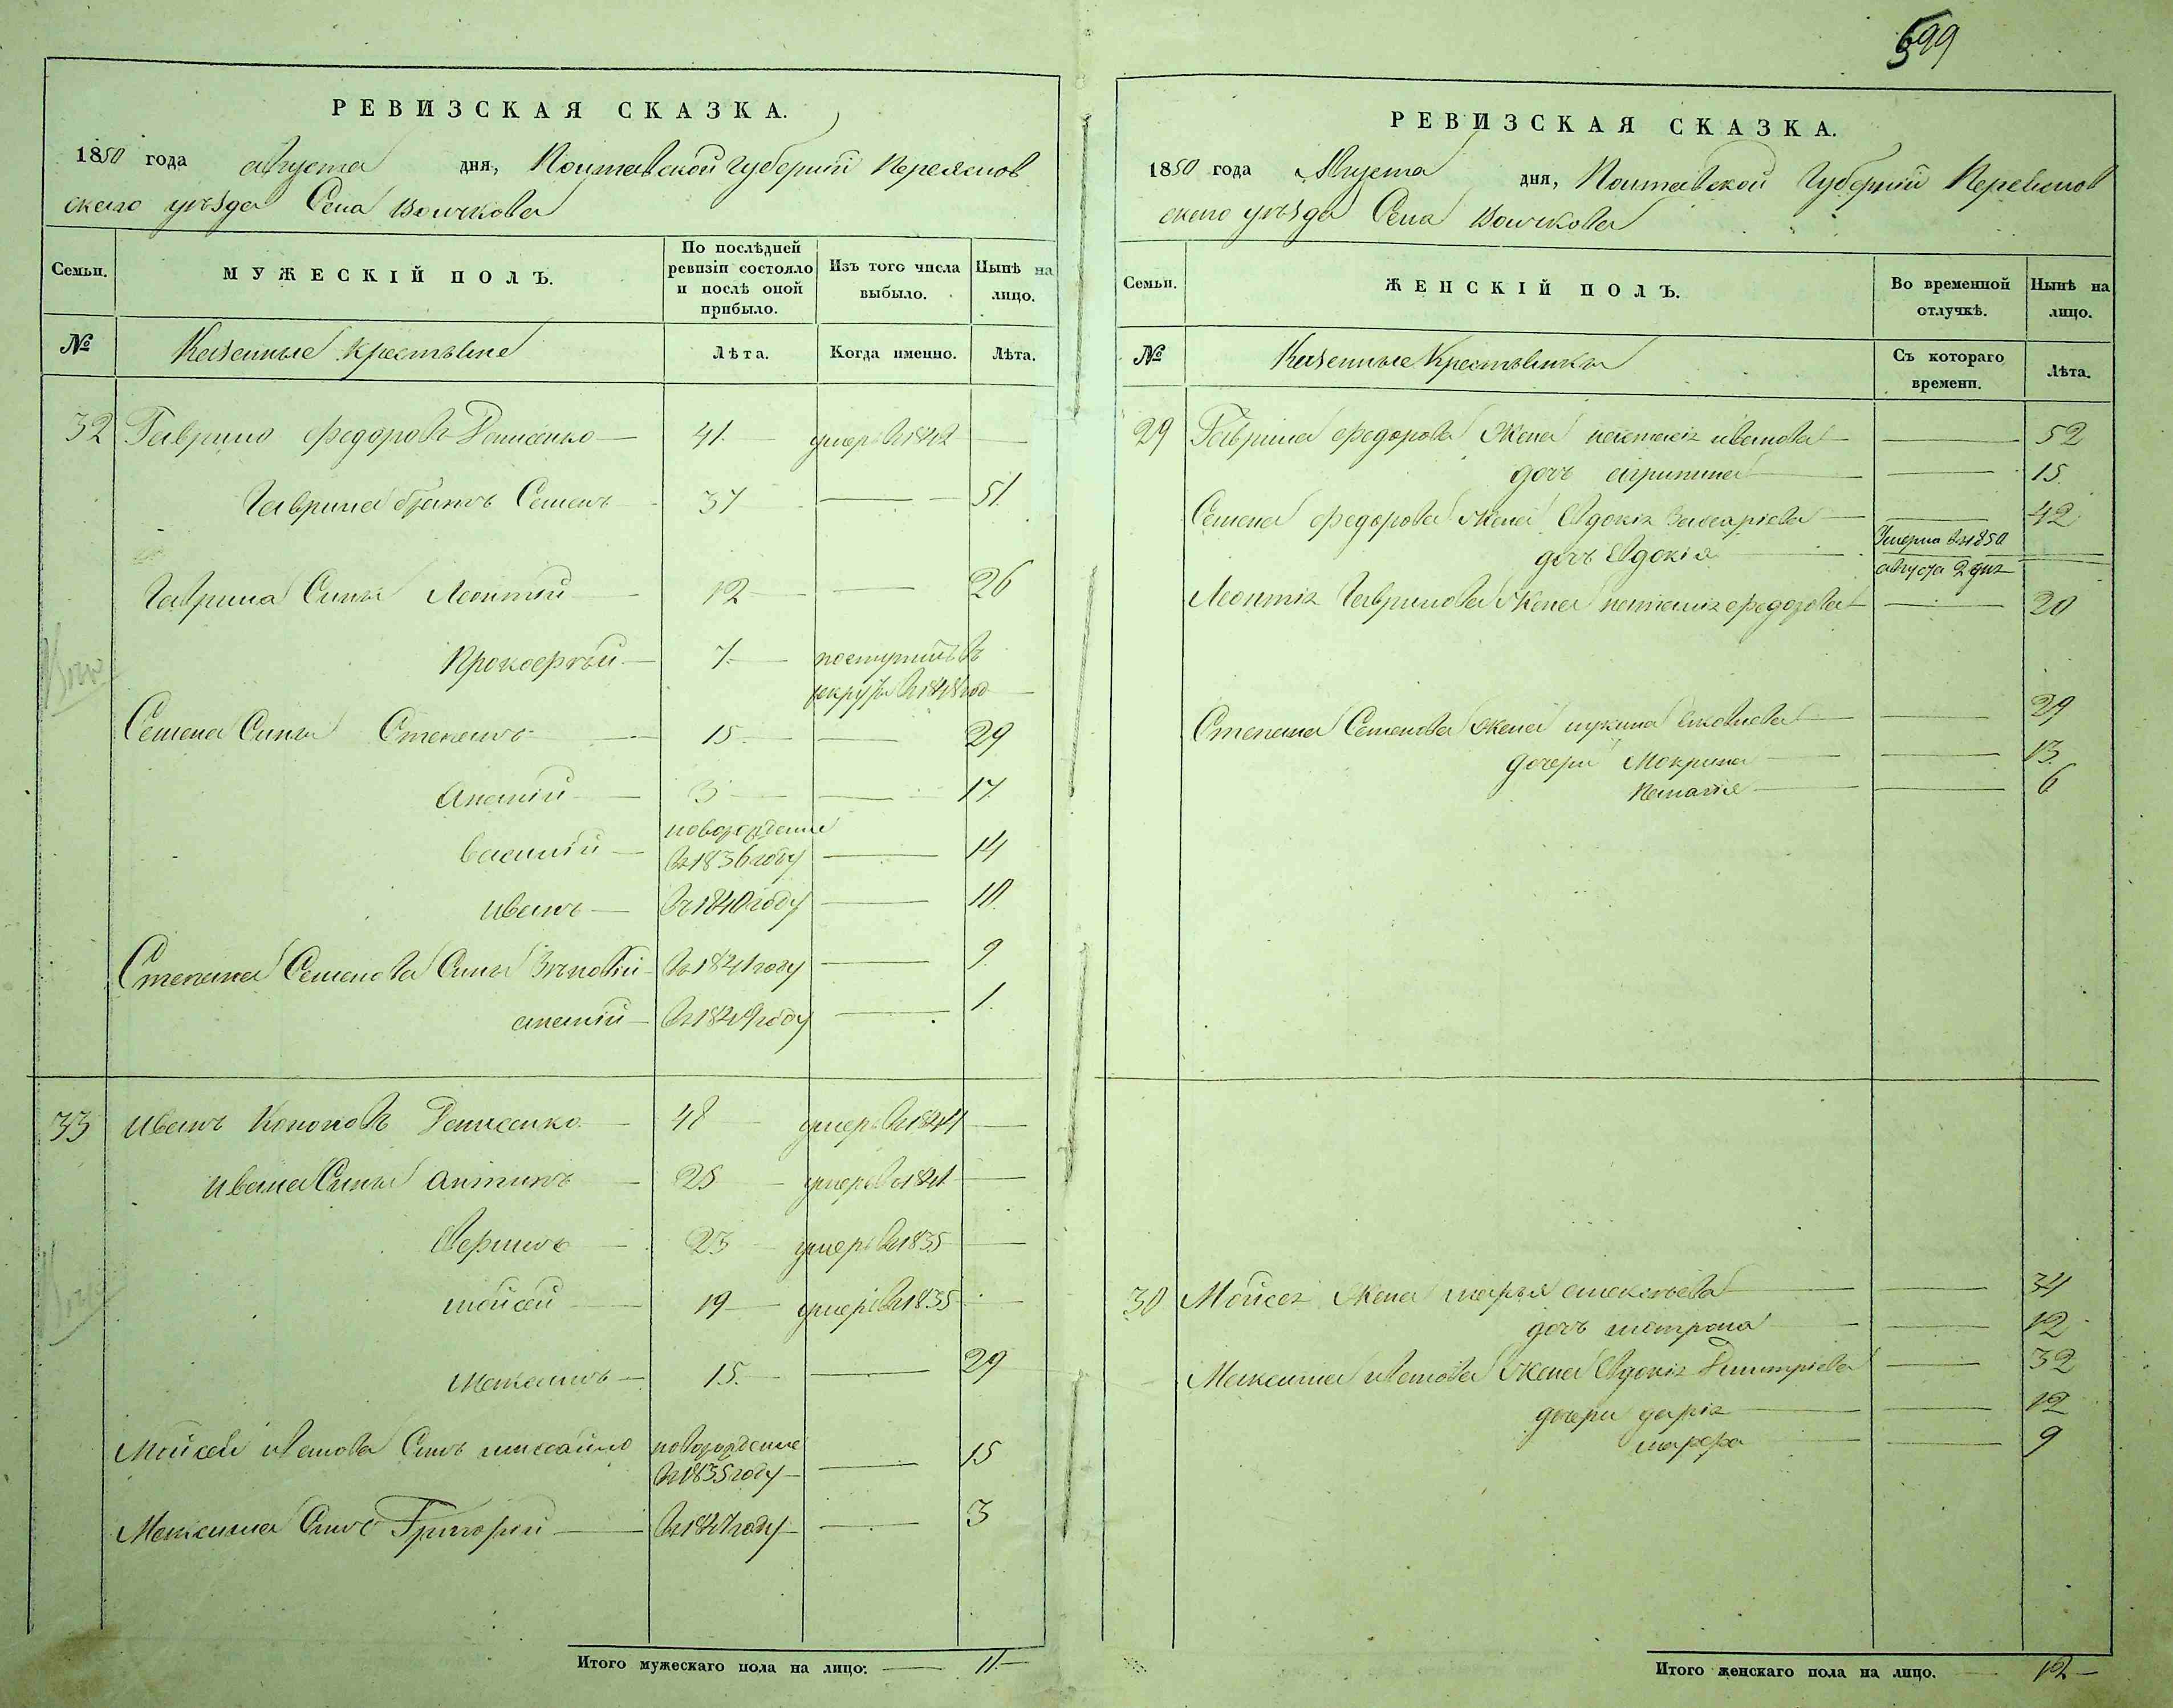 599
РЕВИЗСКАЯ СКАЗКА.
1850 года августа дня, Полтавской губерніи Переяслов
скаго уѣзда Села Волчкова
Семьи. МУЖЕСКІЙ ПОЛЪ. По послѣдней ревизіи состояло и послѣ оной прибыло. Изъ того числа выбыло. Нынѣ на лицо.
№ Казенные крестьяне Лѣта. Когда именно. Лѣта.
32 Гаврило Федоровъ Денисенко — 41 — умеръ въ 1842 —
Гаврила братъ Семенъ 37 — 51.
Гаврила Сыны Леонтій 12 — 26
Прокофій — 7 — поступилъ въ
рекруты въ 1848 год —
Семена Сыны Степанъ — 15 — 29
Ананій — 3 — 17
Василій — новорожденные
въ 1836 году — 14
Иванъ — въ 1840 году — 10.
Степана Семенова Сыны Зѣновій въ 1841 году — 9.
ананій — въ 1849 году — 1.
33 Иванъ Кононовъ Денисенко — 48 умеръ въ 1844 —
Ивана Сыны Антинъ 28 — умеръ въ 1841 —
Аверьянъ 23 — умеръ въ 1835 —
мойсей 19 — умеръ въ 1835 —
Максимъ — 15. — 29
Мойсея иванова Сынъ михайло новорожденные
въ 1835 году — 15
Максима Сынъ Григорій — въ 1847 году — 3
Итого мужескаго пола на лицо: — 11 —
РЕВИЗСКАЯ СКАЗКА.
1850 года Августа дня, Полтавской Губерніи Переяслов
скаго уѣзда Села Волчкова
Семьи. ЖЕНСКІЙ ПОЛЪ. Во временной отлучкѣ. Нынѣ на лицо.
№ Казенные Крестьянки Съ котораго времени. Лѣта.
29 Гаврила Федорова Жена настасія иванова — 52
дочь агрипина — 15.
Семена Федорова Жена Евдокія Захаріева — 42
дочь Евдокія — Умерла въ 1850
августа 2 дня
Леонтія Гаврилова Жена Федорова — 20
Степана Семенова Жена Яковлева — 29
дочери Мокрина — 13.
Пелагія — 6
30 Мойсея Жена марья алексѣева — 34
дочь матрона — 12
Максима иванова Жена Евдокія Димитріева — 32
дочери дарія — 12
марфа — 9
Итого женскаго пола на лицо. — 12 —